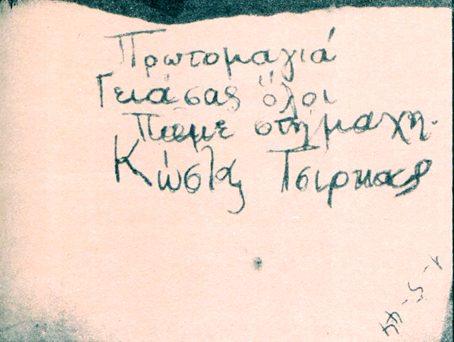 Πρωτομαγιά
Γειάσας όλοι
Πάμε στη μάχη.
Κώστας Τσιρκας
1-5-44